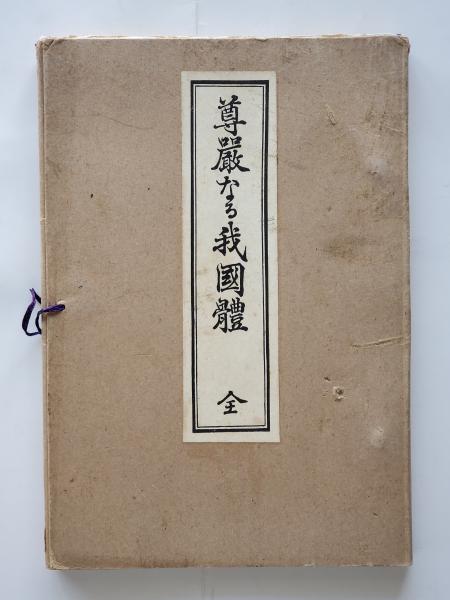 尊嚴なる我國體
全